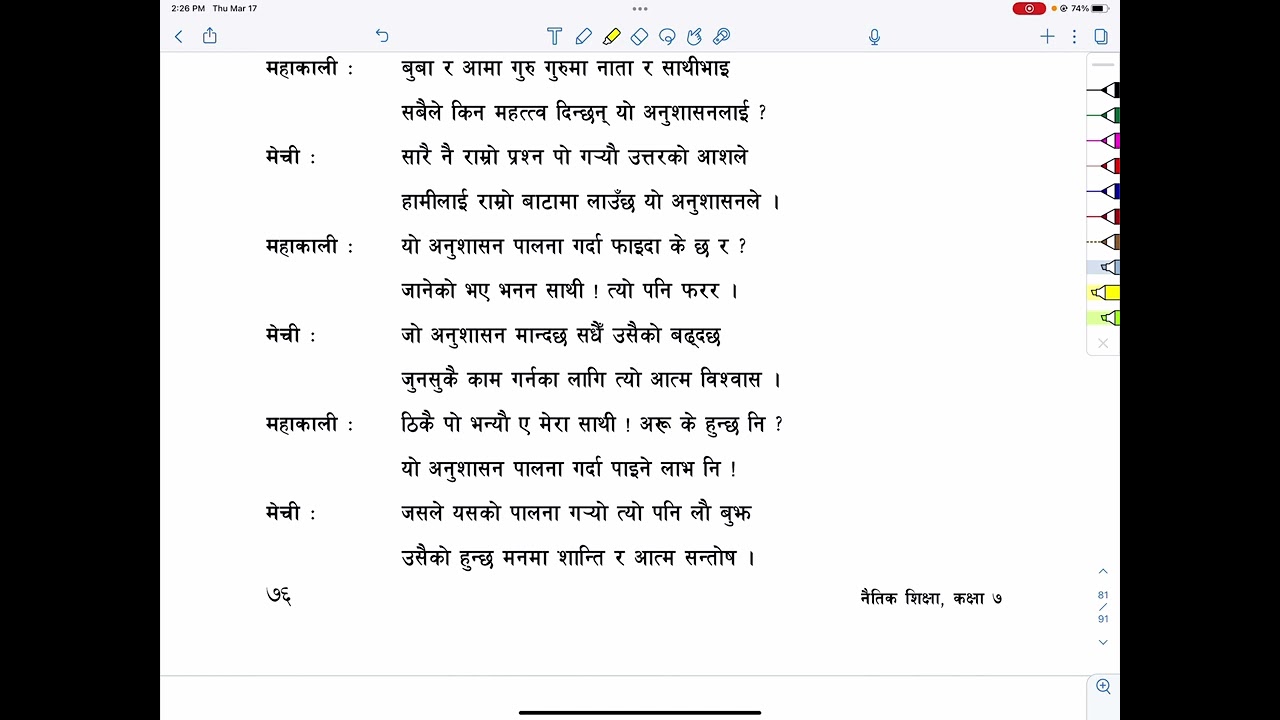 2:26 PM Thu Mar 17
74%
महाकाली : बुबा र आमा गुरु गुरुमा नाता र साथीभाइ
सबैले किन महत्त्व दिन्छन् यो अनुशासनलाई ?
मेची : सारै नै राम्रो प्रश्न पो गऱ्यौ उत्तरको आशले
हामीलाई राम्रो बाटामा लाउँछ यो अनुशासनले ।
महाकाली : यो अनुशासन पालना गर्दा फाइदा के छ र ?
जानेको भए भनन साथी ! त्यो पनि फरर ।
मेची : जो अनुशासन मान्दछ सधैँ उसैको बढ्दछ
जुनसुकै काम गर्नका लागि त्यो आत्म विश्वास ।
महाकाली : ठिकै पो भन्यौ ए मेरा साथी ! अरू के हुन्छ नि ?
यो अनुशासन पालना गर्दा पाइने लाभ नि !
मेची : जसले यसको पालना गऱ्यो त्यो पनि लौ बुझ
उसैको हुन्छ मनमा शान्ति र आत्म सन्तोष ।
७६ नैतिक शिक्षा, कक्षा ७
81
/
91